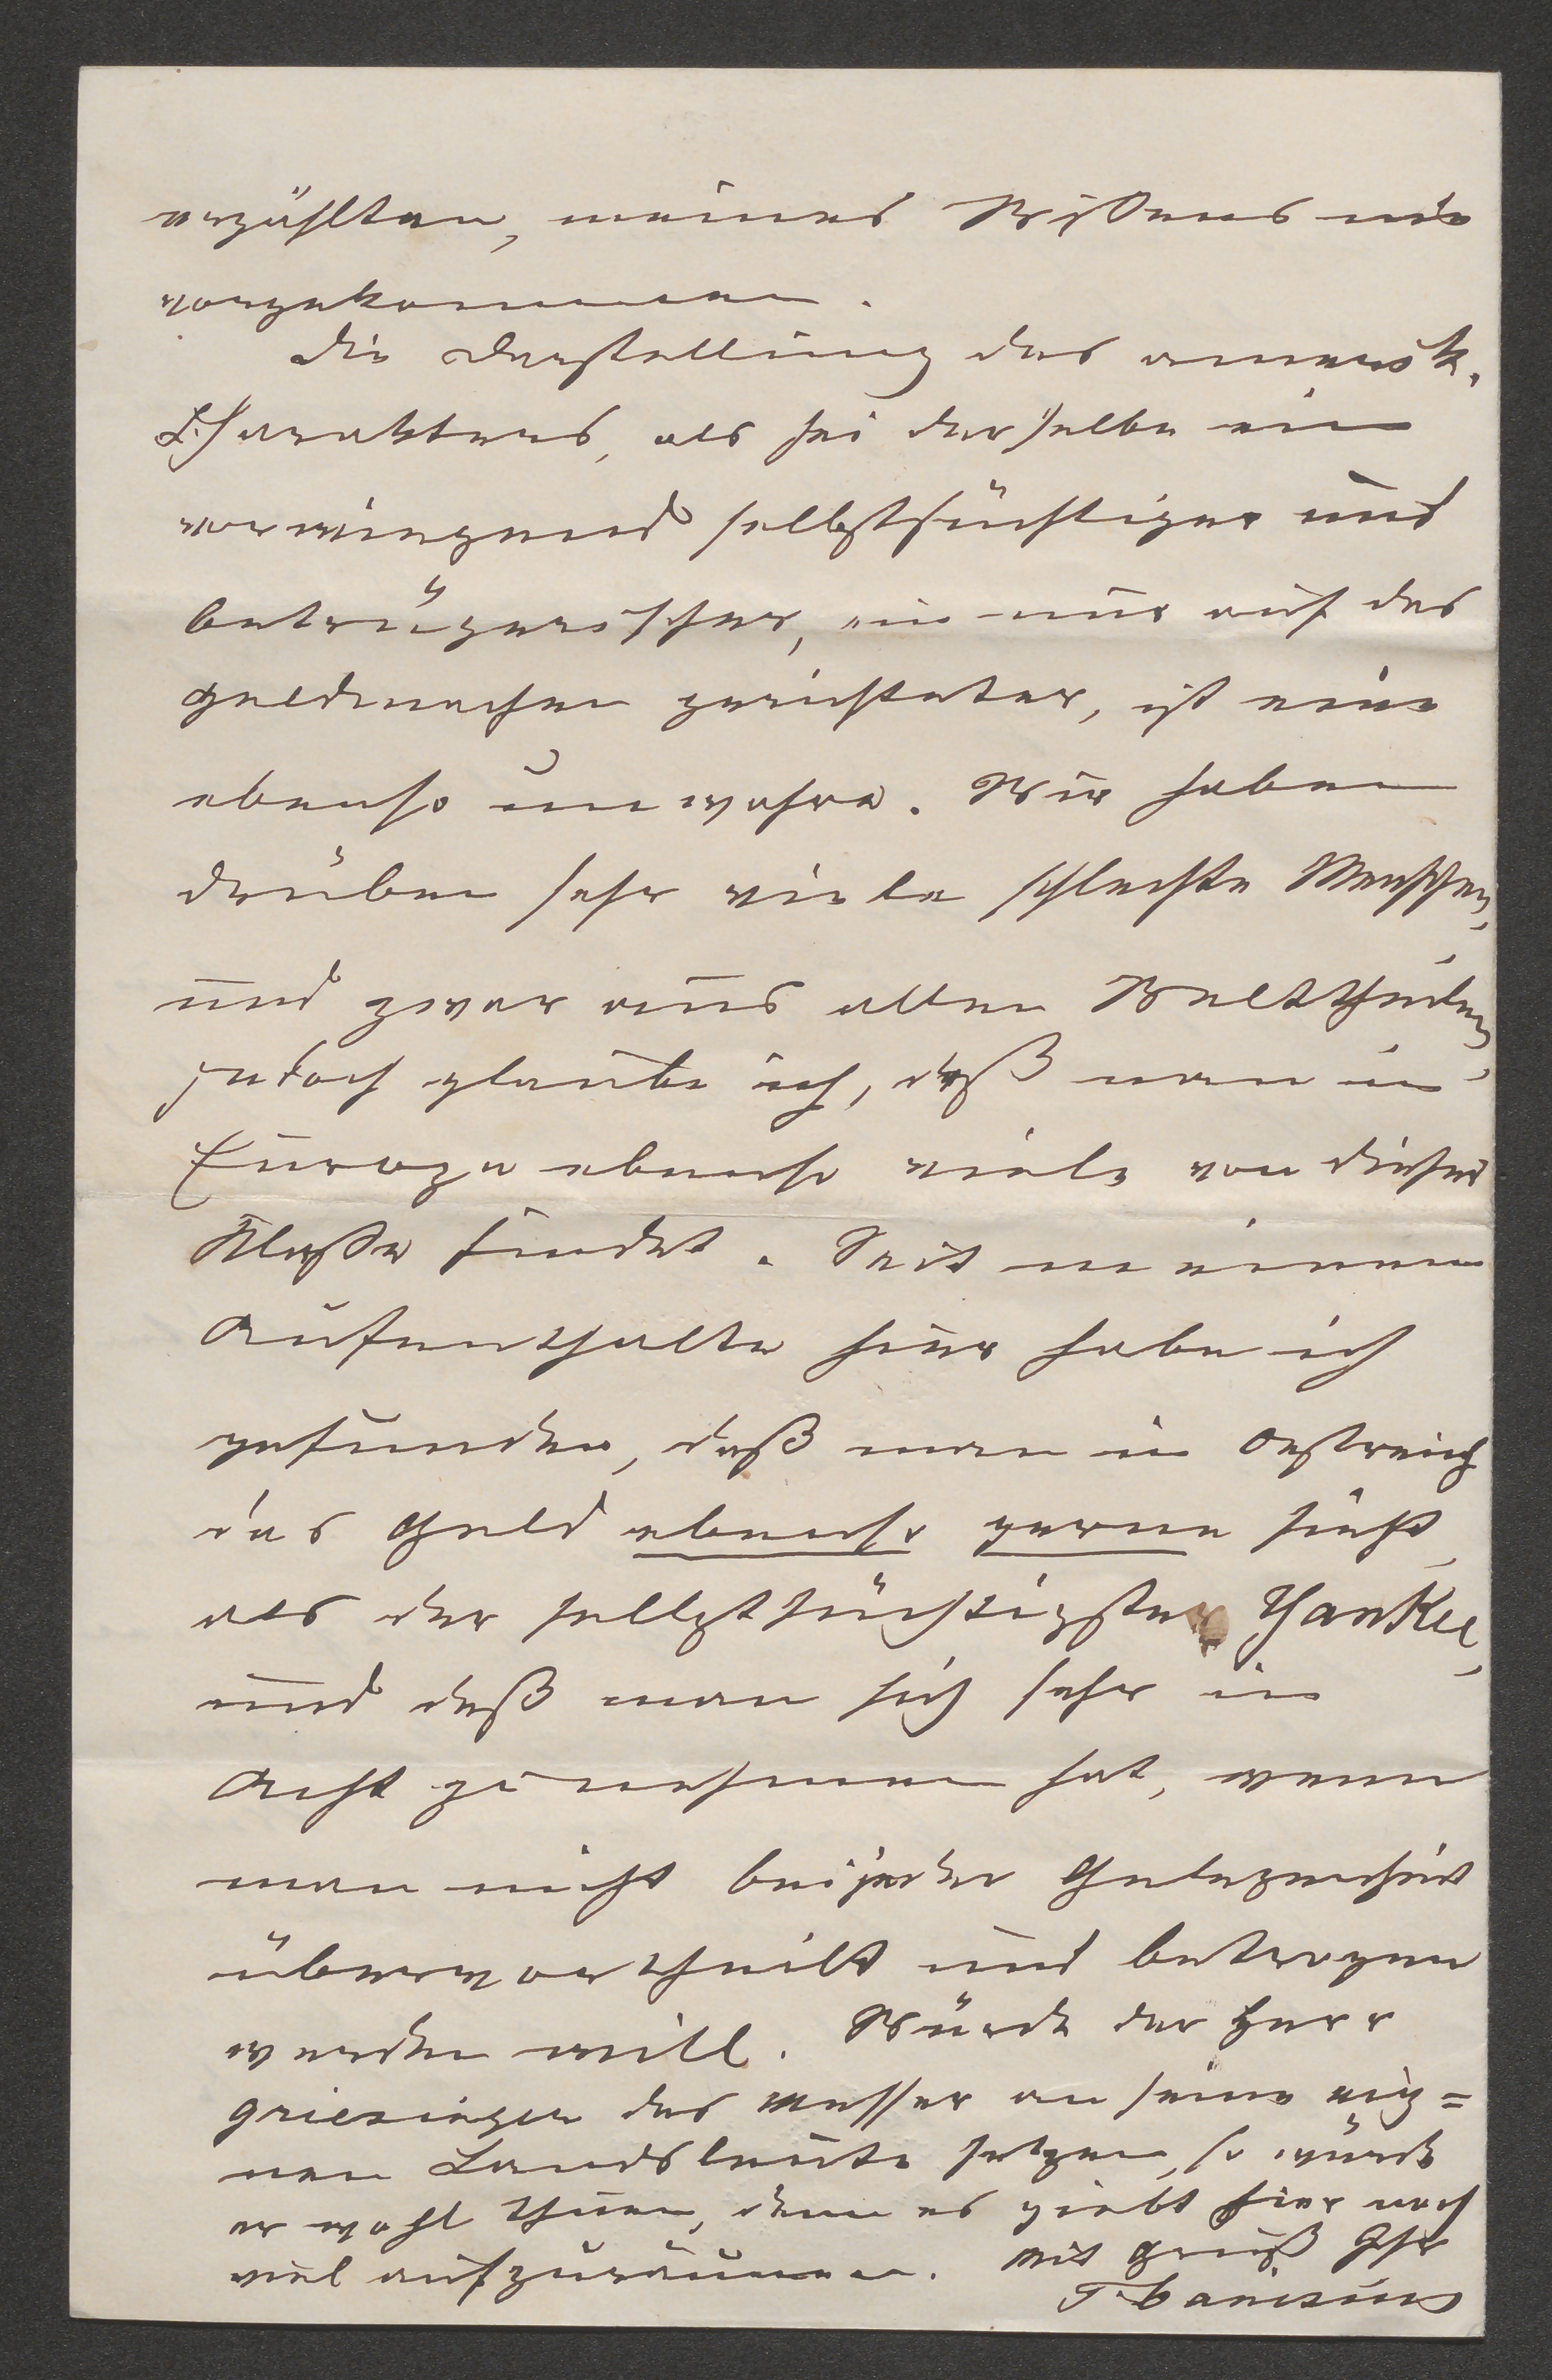 erzählten, meines Wißens nie
vorgekommen.
Die Darstellung des amerik.
Charakters, als sei derselbe ein
vorwiegend selbstsüchtiger und
betrügerischer, ein nur auf das
Geldmachen gerichteter, ist eine
ebenso unwahre. Wir haben
drüben sehr viele schlechte Menschen,
und zwar aus allen Welttheilen,
jedoch glaube ich, daß man in
Europa ebenso viele von dieser
Klaße findet. Seit meinem
Aufenthalte hier habe ich
gefunden, daß man in Oestreich
das Geld ebenso gerne sieht,
als der selbstsüchtigste Yankee,
und daß man sich sehr in
Acht zu nehmen hat, wenn
man nicht bei jeder Gelegenheit
übervortheilt und betrogen
werden will. Würde der Herr
Griesinger das Messer an seine eig=
nen Landsleute setzen, so würde
er wohl thuen, denn es giebt hier noch
viel aufzuräumen. Mit Gruß Ihr
T. Canisius